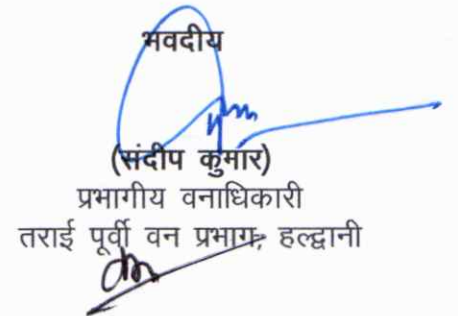 भवदीय
(संदीप कुमार)
प्रभागीय वनाधिकारी
तराई पूर्वी वन प्रभाग, हल्द्वानी